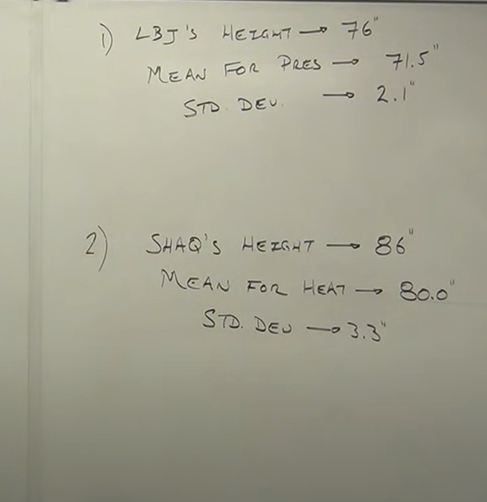 1) LBJ'S HEIGHT → 76"
MEAN FOR PRES → 71.5"
STD. DEV. → 2.1"
2) SHAQ'S HEIGHT → 86"
MEAN FOR HEAT → 80.0"
STD. DEV → 3.3"